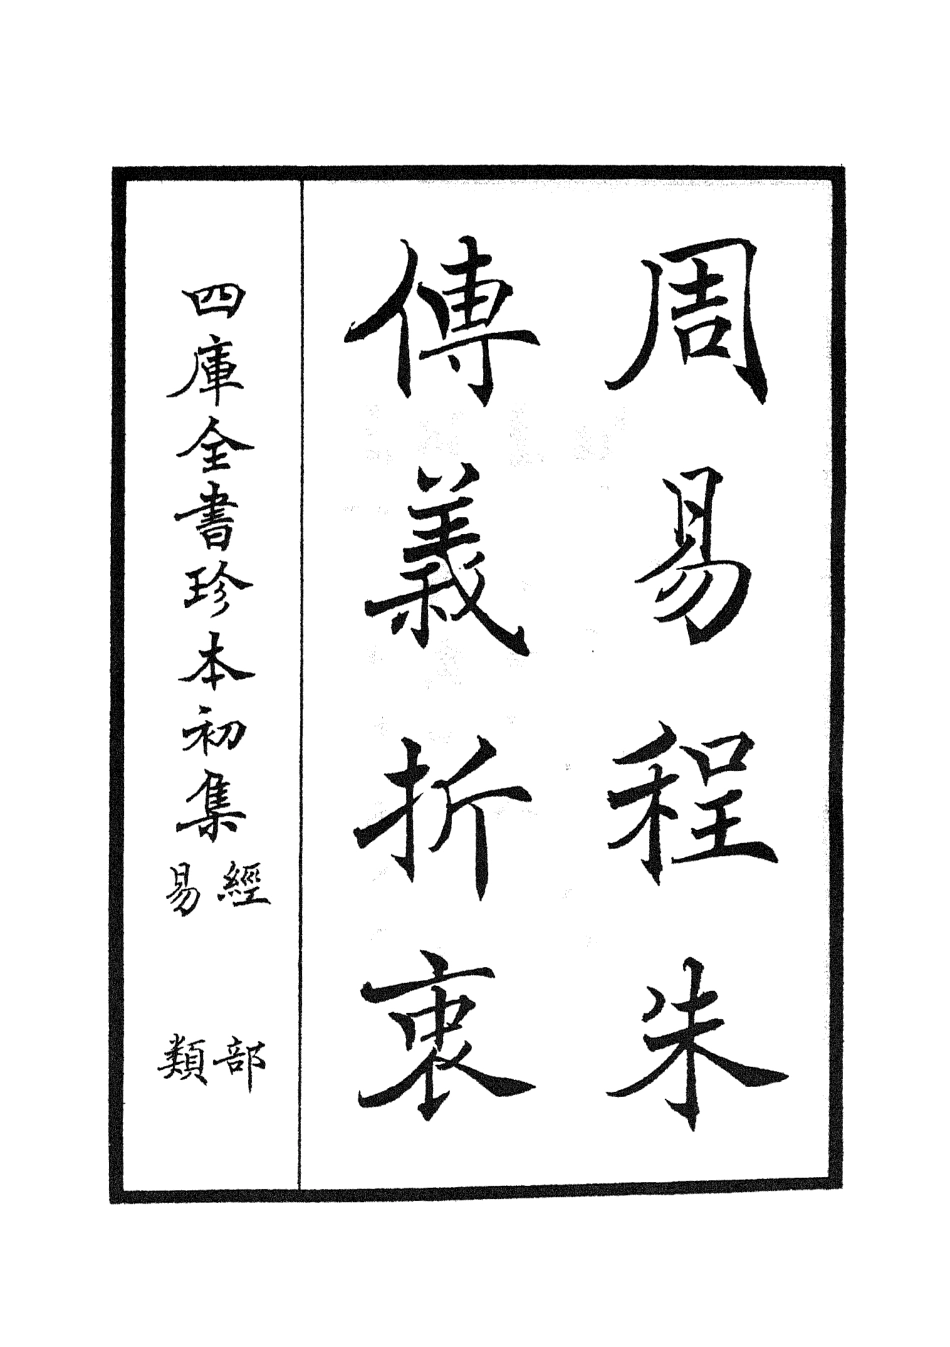 周易程朱
傳義折衷
四庫全書珍本初集
經部
易類